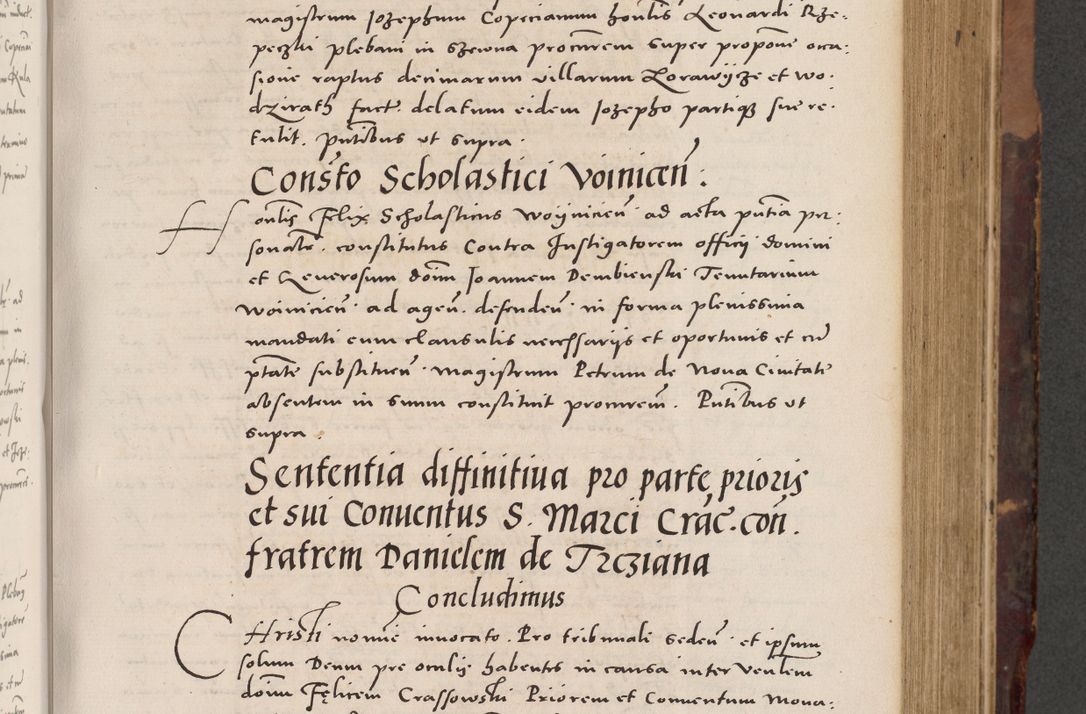 magistrum Jozephum Copecianum honlis Leonardi Rze-
peczki plebani in Szewna procurem super propone occa-
sione raptus decimarum villarum Zorawijcze et Wo-
dzirath fact. delatum eidem Jozepho partiq3 sue re-
tulit. Pntibus ut supra.
Consto Scholastici Voinicen:
Honlis Felix Scholasticus Woijnicien. ad acta pntia per-
sonalr. constitutus Contra Instigatorem officij domini
et Generosum doim Joannem Dembienski Tenutarium
Woinicien. ad agen. defenden. in forma plenissima
mandati cum clausulis necessarijs et oportunis et cu
ptate substituen. magistrum Petrum de Noua Ciuitate
absentem in suum constituit procurem. Pntibus ut
supra.
Sententia diffinitiua pro parte prioris
et sui Conuentus S. Marci Crac. con.
fratrem Danielem de Trcziana
Concludimus
CHristi nomie inuocato. Pro tribunali seden. et ipsum
solum Deum pre oculis habentes in causa inter Venlem
doim Felicem Crassowski Priorem et Conuentum Mona-